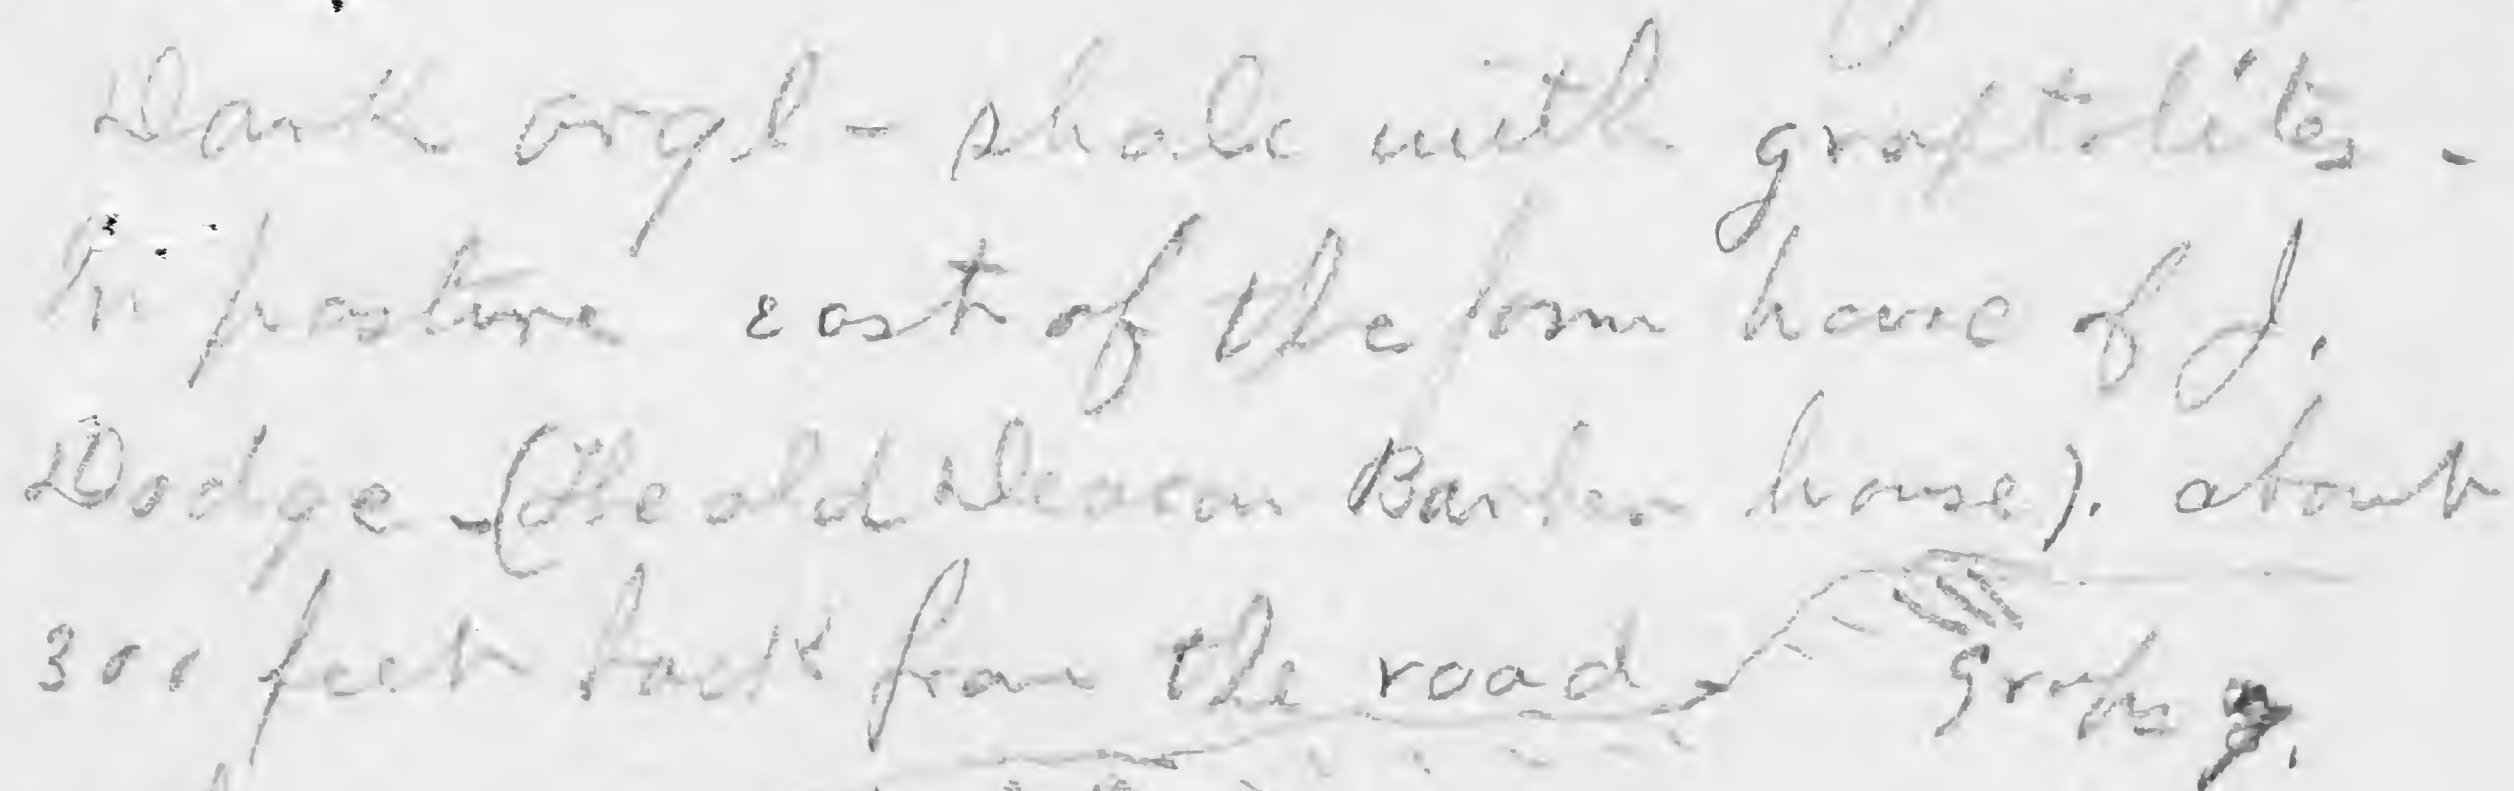 Dark argl - shale with graptolites -
in pasture east of the farm house of J.
Dodge - (the old Deacon Barker house). about
300 feet back from the road